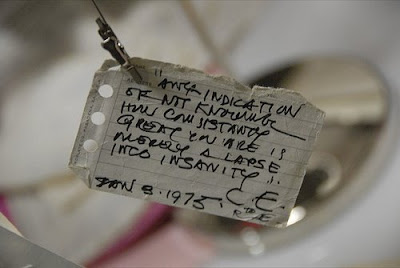 "ANY INDICATION
OF NOT KNOWING
HOW CONSISTANTLY
GREAT YOU ARE IS
MERELY A LAPSE
INTO INSANITY".
C.E.
JAN 8. 1975.